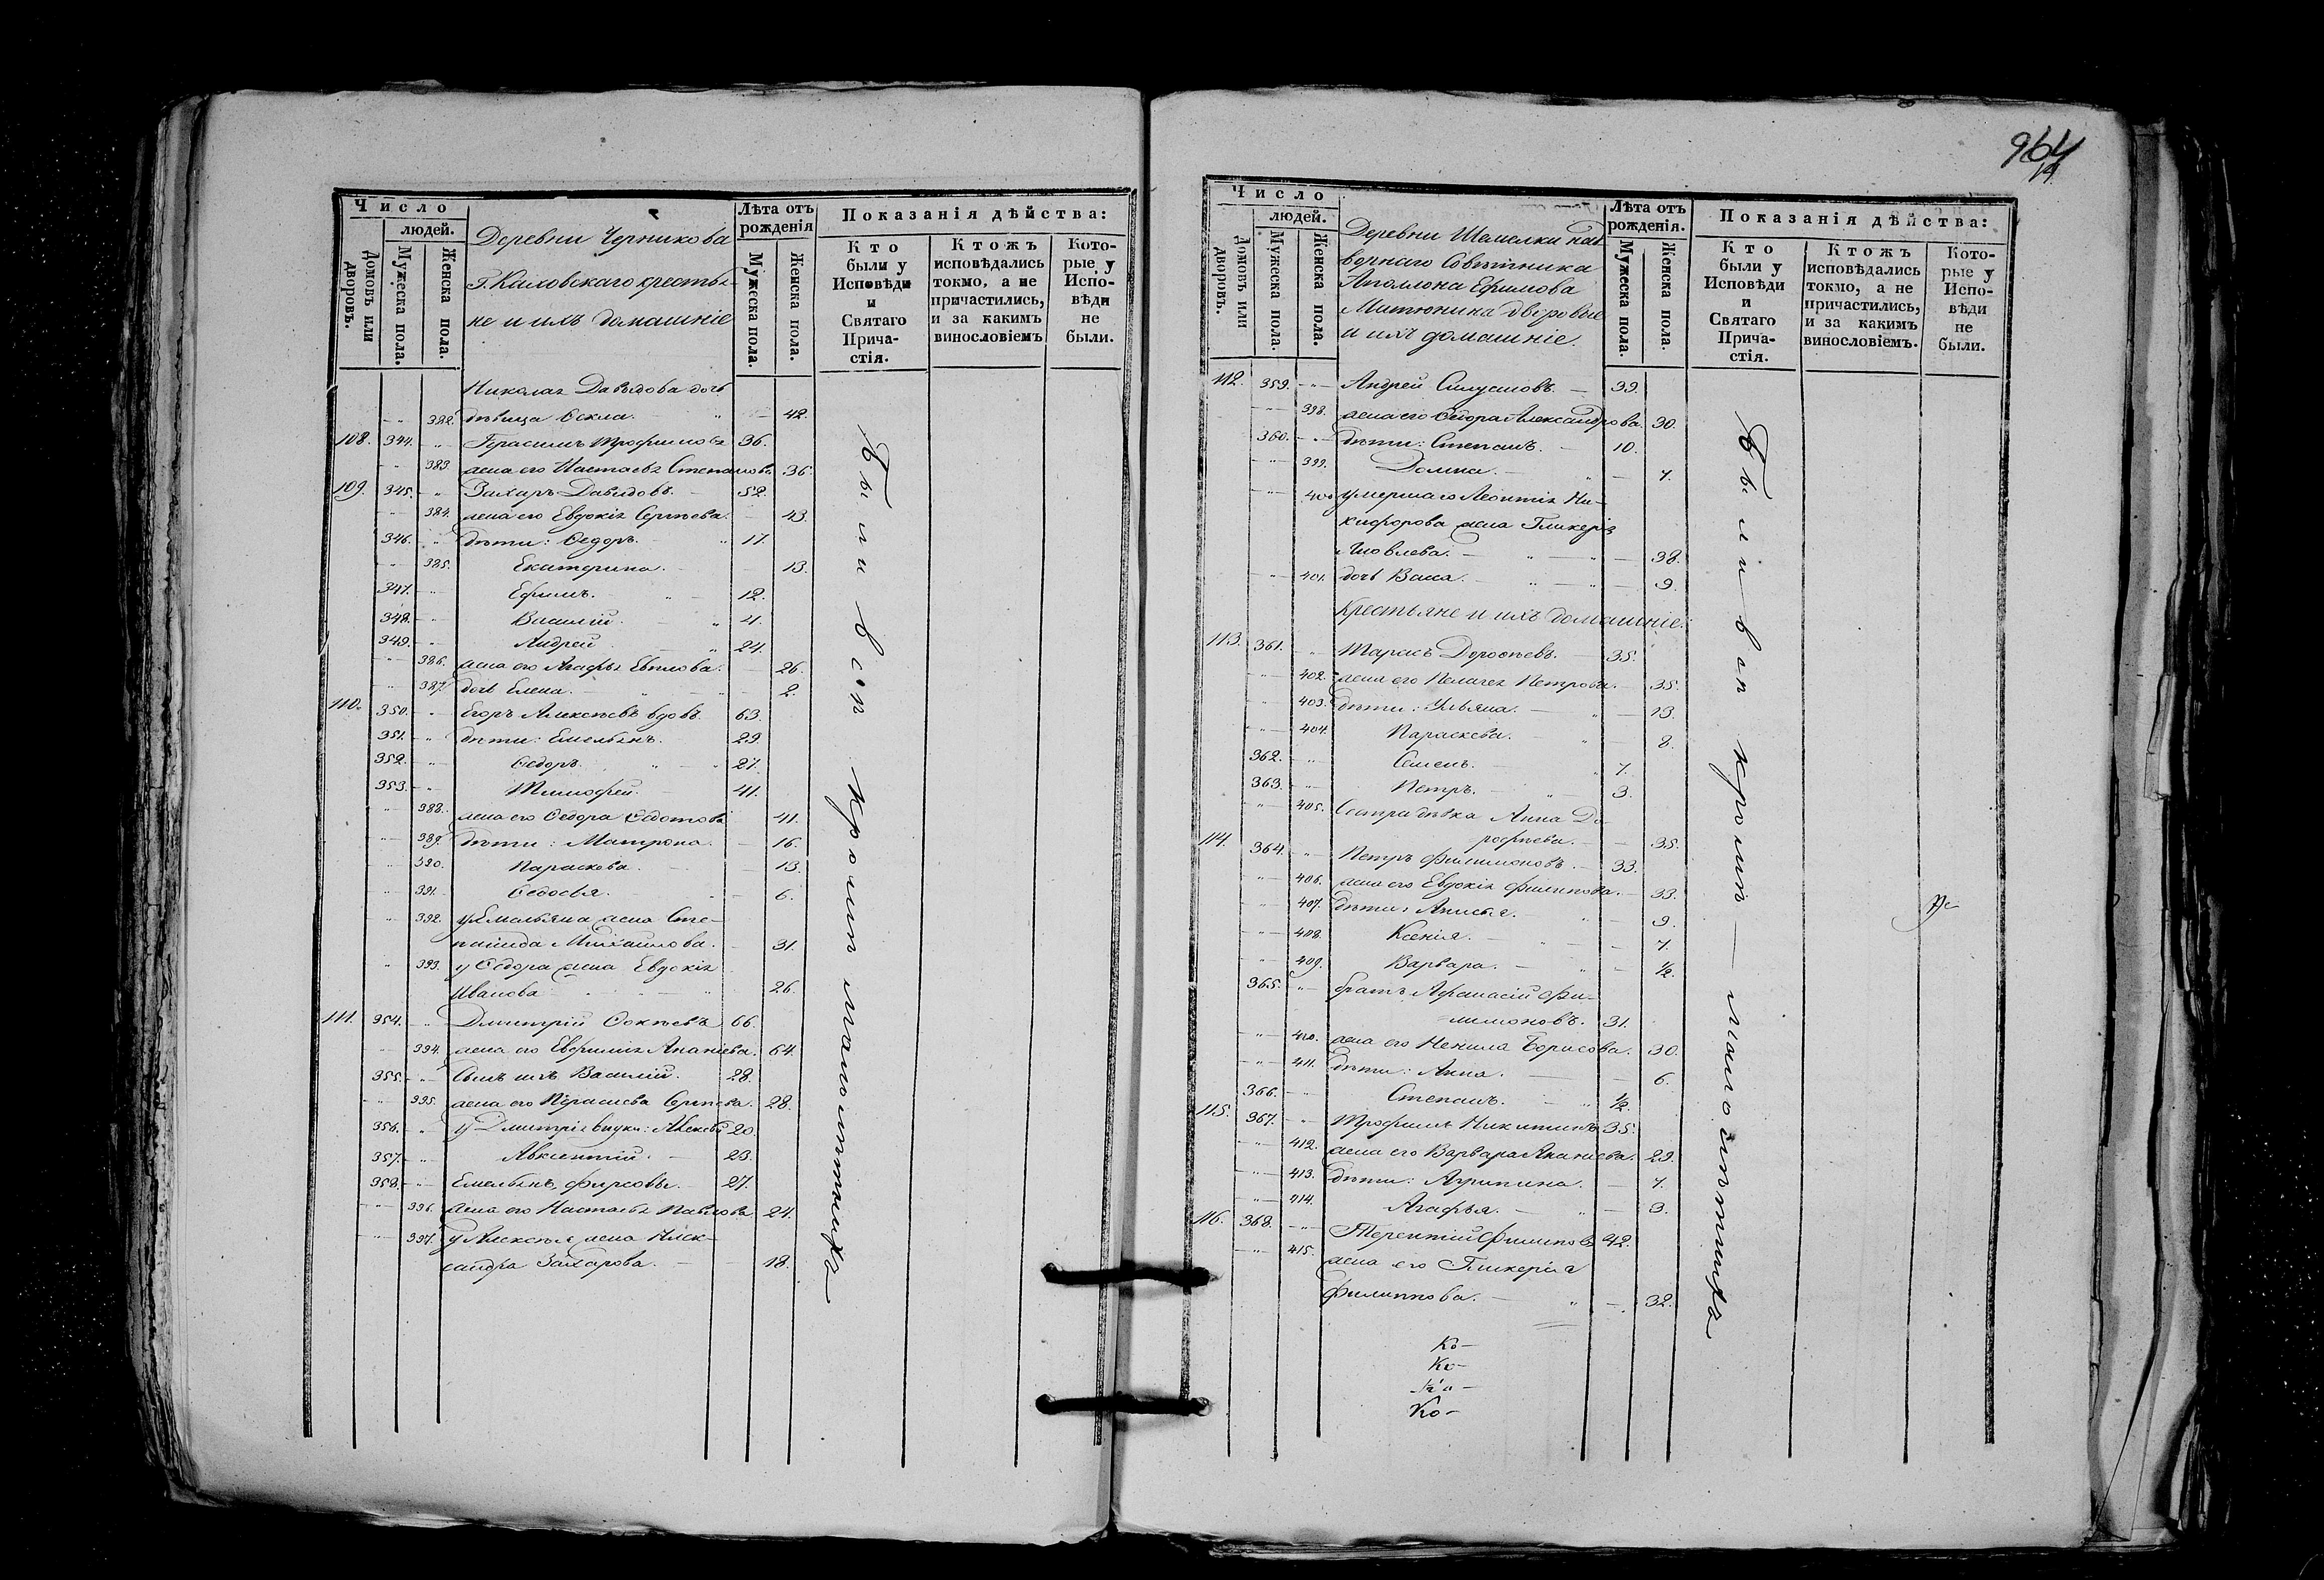 964
Число
людей.
Домовъ или дворовъ.
Мужеска пола.
Женска пола.
Деревни Черникова
Г. Каховскаго крестья-
не и ихъ домашніе
Лѣта отъ рожденія
Мужеска пола.
Женска пола.
Показанія дѣйства:
Кто были у Исповѣди и Святаго Прича-стія.
Ктожъ исповѣдались токмо, а не причастились, и за какимъ винословіемъ
Кото-рые у Испо-вѣди не были.
Давыдова дочь
382. дѣвица 42.
108. 344. Герасимъ Трофимовъ 36.
383. жена его Настасья Степанова 36.
109. 345. Захаръ Давыдовъ. 52.
384. жена его Евдокія Сергѣева. 43.
346. дѣти: Ѳедоръ. 17.
385. Екатерина. 13.
347. Ефимъ. 12.
348. Василій. 4.
349. Андрей 24.
386. жена его Агафья 26.
387. дочь Елена. 2.
110. 350. Егоръ Алексѣевъ вдовъ. 63.
351. дѣти: Емельянъ. 29.
352. Ѳедоръ. 27.
353. Тимофей. 41.
388. жена его Ѳедора Ѳедотова 41.
389. дѣти: Матрона. 16.
390. Параскова. 13.
391. Ѳедосья. 6.
392. у Емельяна жена Сте-
панида Михаилова. 31.
393. у Ѳедора жена Евдокія
Иванова 26.
111. 354. Дмитрій 66.
394. жена его Евфимія Ананіева. 64.
355. Сынъ ихъ Василій. 28.
395. жена его Сергѣева. 28.
356. у Дмитрія внуки: Алексѣй 20.
357. Авксентій. 23.
358. Емельянъ Фирсовъ. 27.
396. жена его Настасья Павлова 24.
397. у Алексѣя жена Алек-
сандра Захарова. 18.
Были всѣ кромѣ малолѣтнихъ
Число
людей.
Домовъ или дворовъ.
Мужеска пола.
Женска пола.
Деревни Шемелки над-
ворнаго Совѣтника
Аполлона Ефимова
Митюнина дворовые
и ихъ домашніе.
Лѣта отъ рожденія.
Мужеска пола.
Женска пола.
Показанія дѣйства:
Кто были у Исповѣди и Святаго Прича-стія.
Ктожъ исповѣдались токмо, а не причастились, и за какимъ винословіемъ.
Кото-рые у Испо-вѣди не были.
112. 359. Андрей Силуановъ. 39.
398. жена его Ѳедора Александрова. 30.
360. дѣти: Степанъ. 10.
399. Домна. 7.
400 умершаго Леонтія Ни-
кифорова жена Гликерія
Яковлева. 38.
401. дочь Васса. 9.
Крестьяне и ихъ домашніе.
113. 361. Тарасъ Дороѳеевъ. 35.
402. жена его Пелагея Петрова. 35.
403. дѣти: Ульяна. 13.
404. Параскева. 8.
362. Семенъ. 7.
363. Петръ. 3.
405. Сестра дѣвка Анна До-
рофѣева. 35.
114. 364. Петръ Филимоновъ. 33.
406. жена его Евдокія Филипова. 33.
407. дѣти: Анисья. 9.
408. Ксенія. 7.
409. Варвара. ½.
365. братъ Афанасій Фи-
лимоновъ. 31.
410. жена его Ненила Борисова. 30.
411. дѣти: Анна. 6.
366. Степанъ. ½.
115. 367. Трофимъ Никитинъ 35.
412. жена его Варвара Ананіева. 29.
413. дѣти: Агрипина. 7.
414. Агафья. 3.
116. 368. Терентій Филиповъ 42.
415. жена его Гликерія
Филиппова. 32.
Были всѣ кромѣ — малолѣтнихъ
Ко-
Ко-
Ко-
Ко-